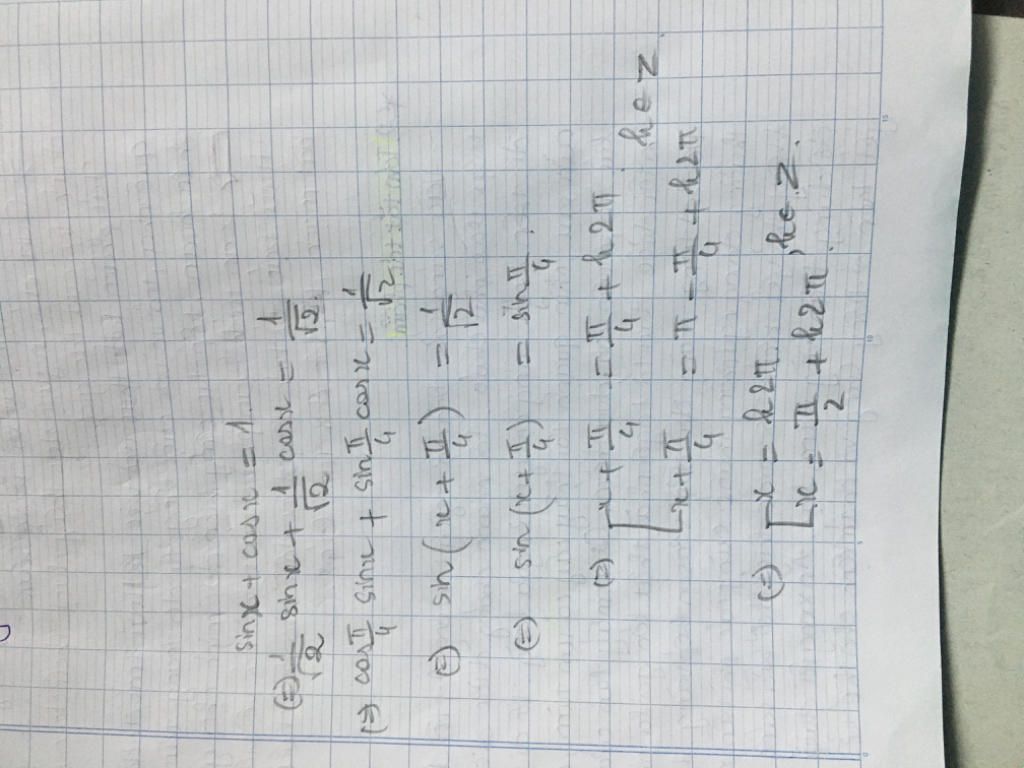 sinx + cosx = 1
(=) 1/√2 sinx + 1/√2 cosx = 1/√2.
(=) cos π/4 sinx + sin π/4 cosx = 1/√2
(=) sin(x + π/4) = 1/√2
(=) sin(x + π/4) = sin π/4.
(=) [x + π/4 = π/4 + k2π
[x + π/4 = π - π/4 + k2π , k ∈ Z.
(=) [x = k2π
[x = π/2 + k2π , k ∈ Z.